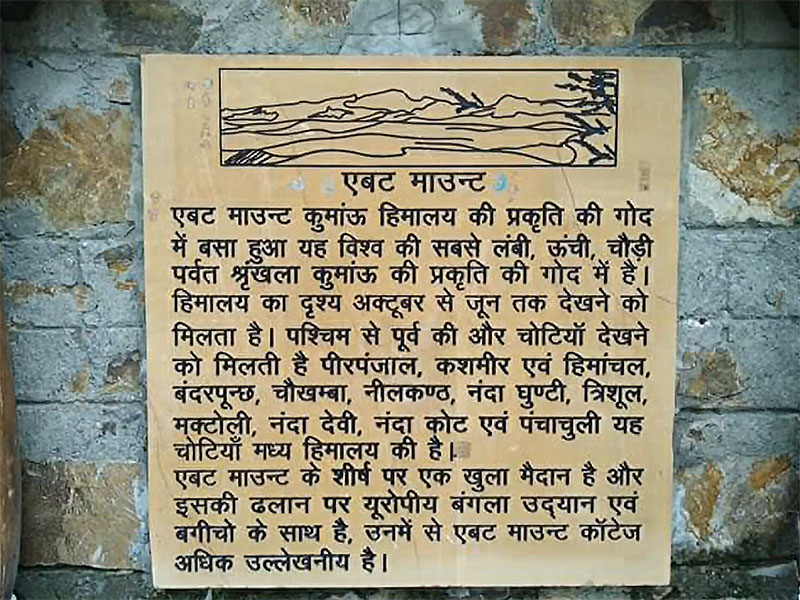 एबट माउन्ट
एबट माउन्ट कुमांऊ हिमालय की प्रकृति की गोद
में बसा हुआ यह विश्व की सबसे लंबी, ऊंची, चौड़ी
पर्वत श्रृंखला कुमांऊ की प्रकृति की गोद में हैं।
हिमालय का दृश्य अक्टूबर से जून तक देखने को
मिलता है। पश्चिम से पूर्व की और चोटियॉ देखने
को मिलती है पीरपंजाल, कशमीर एवं हिमांचल,
बंदरपून्छ, चौखम्बा, नीलकण्ठ, नंदा घुण्टी, त्रिशूल,
मक्टोली, नंदा देवी, नंदा कोट एवं पंचाचुली यह
चोटियाँ मध्य हिमालय की है।
एबट माउन्ट के शीर्ष पर एक खुला मैदान है और
इसकी ढलान पर यूरोपीय बंगला उद्यान एवं
बगीचो के साथ है, उनमें से एबट माउन्ट कॉटेज
अधिक उल्लेखनीय है।